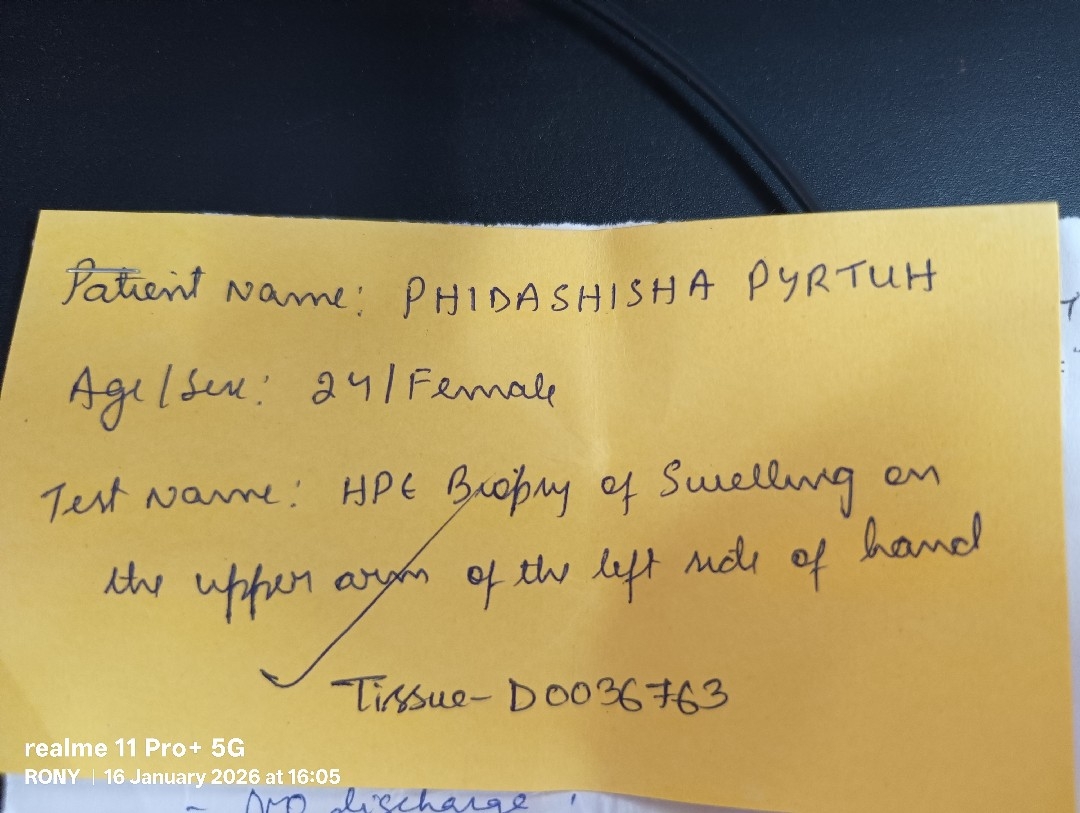 Patient Name: PHIDASHISHA PYRTUH
Age/Sex: 24/Female
Test Name: HPE Biopsy of Swelling on
the upper arm of the left side of hand
Tissue- D0036763
realme 11 Pro+ 5G
RONY | 16 January 2026 at 16:05
- No discharge